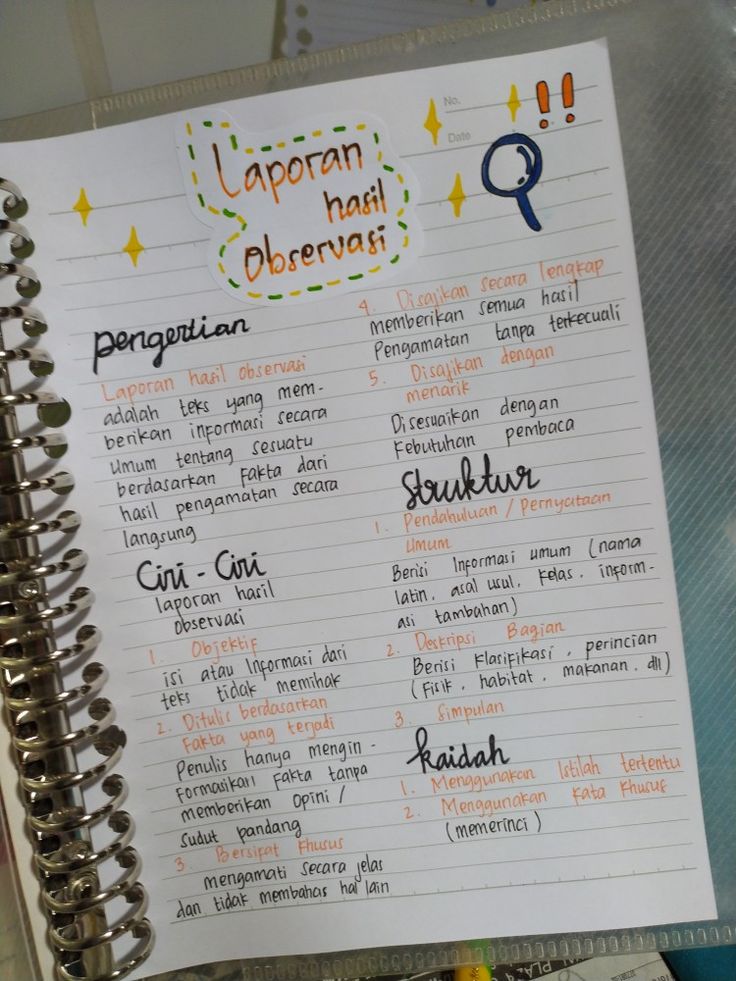 No.
Date
Laporan
hasil
Observasi
pengertian
Laporan hasil observasi
adalah teks yang mem-
berikan informasi secara
umum tentang sesuatu
berdasarkan fakta dari
hasil pengamatan secara
langsung
Ciri - Ciri
laporan hasil
observasi
1. Objektif
isi atau Informasi dari
teks tidak memihak
2. Ditulis berdasarkan
Fakta yang terjadi
Penulis hanya mengin-
formasikan Fakta tanpa
memberikan Opini /
sudut pandang
3. Bersifat khusus
mengamati secara jelas
dan tidak membahas hal lain
4. Disajikan secara lengkap
memberikan semua hasil
Pengamatan tanpa terkecuali
5. Disajikan dengan
menarik
Disesuaikan dengan
Kebutuhan pembaca
Struktur
1. Pendahuluan / Pernyataan
Umum
Berisi Informasi umum (nama
latin, asal usul, Kelas, inform-
asi tambahan)
2. Deskripsi Bagian
Berisi Klasifikasi, perincian
(Fisik, habitat, makanan, dll)
3. Simpulan
kaidah
1. Menggunakan Istilah tertentu
2. Menggunakan Kata Khusus
(memerinci)